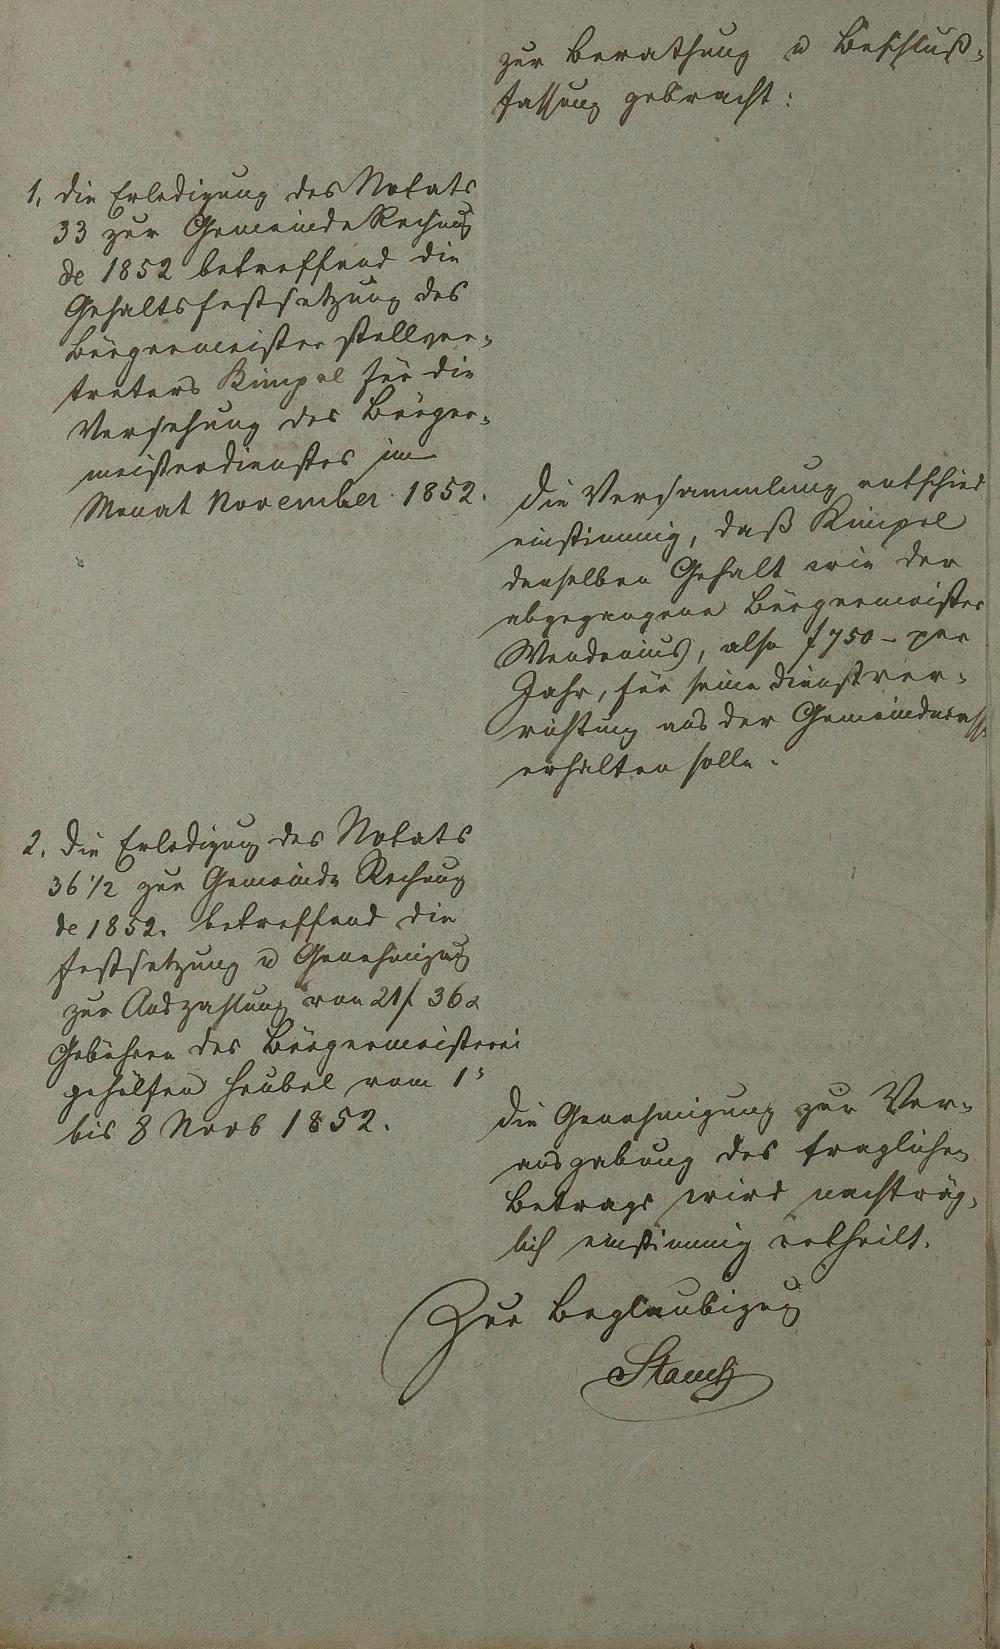 zur Berathung u Beschluß-
fassung gebracht:
1, die Erledigung des Notats
33 zur Gemeinde Rechnung
de 1852 betreffend die
Gehaltsfestsetzung des
Bürgermeisterstellver-
treters Kimpel für die
Versehung des Bürger-
meisterdienstes im
Monat November 1852.
Die Versammlung entschied
einstimmig, daß Kimpel
denselben Gehalt wie der
abgegangene Bürgermeister
also f 750 – per
Jahr, für seine Dienstver-
richtung aus der Gemeindecasse
erhalten solle.
2. Die Erledigung des Notats
36 1/2 zur Gemeinde Rechnung
de 1852. betreffend die
Festsetzung u Genehmigung
zur Auszahlung von 21 f 36 x
Gebühren des Bürgermeisterei
gehülfen Heubel vom 1s
bis 8 Novb 1852.
Die Genehmigung zur Ver-
ausgabung des fraglichen
Betrags wird nachträg-
lich einstimmig ertheilt.
Zur Beglaubigung